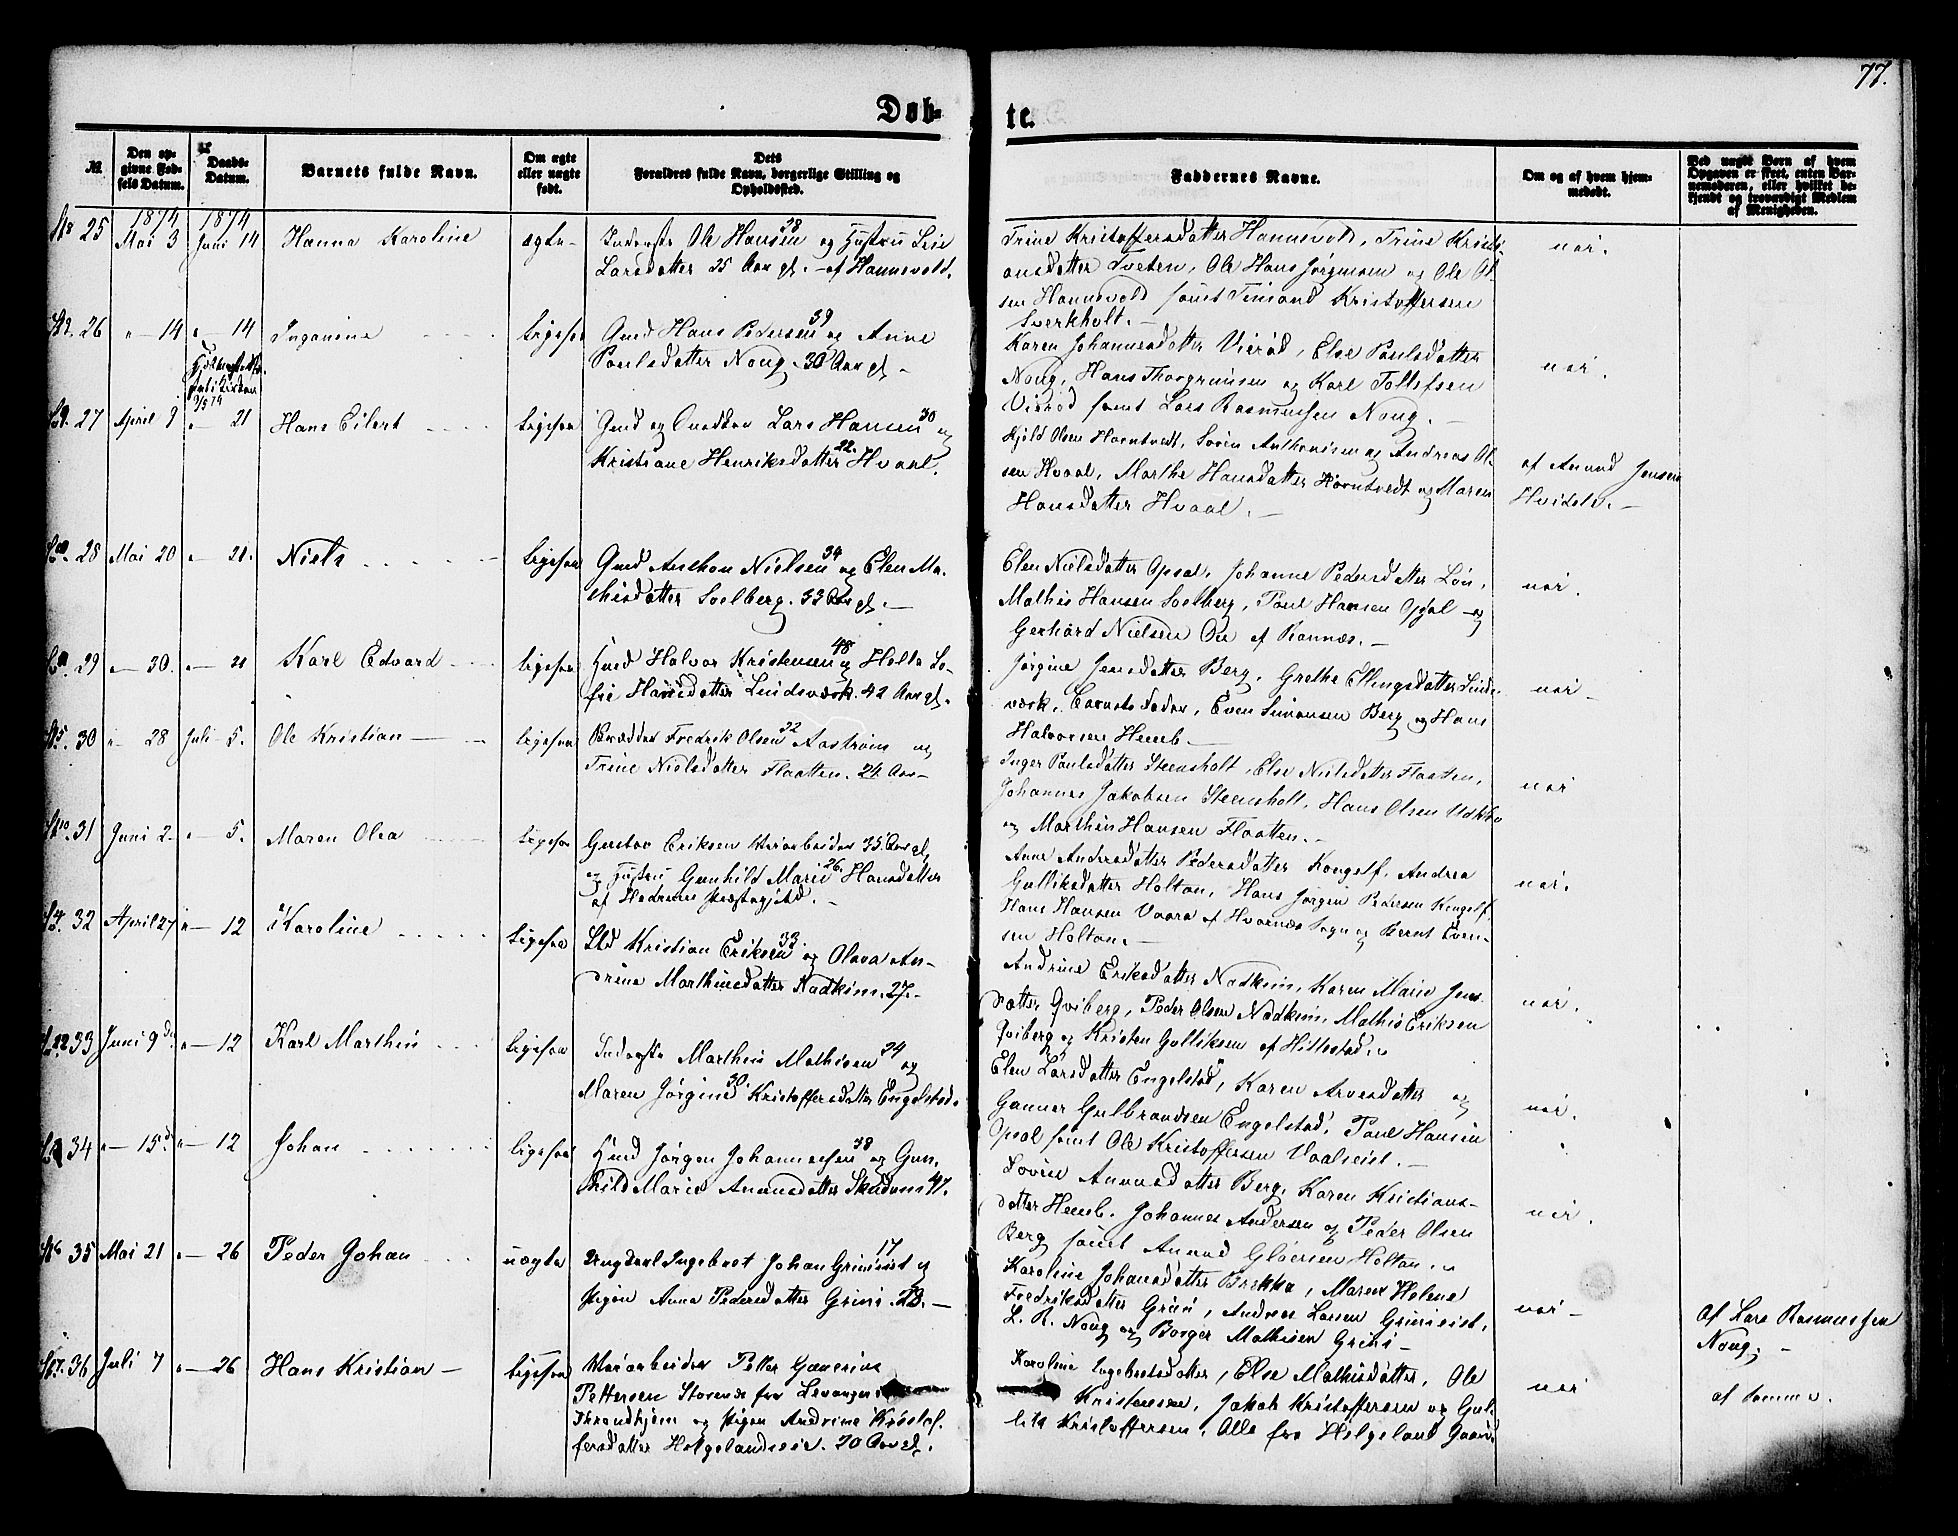 77.
Døb-
te.
№
Den op-
givne Fød-
sels Datum.
Daabs-
Datum.
Barnets fulde Navn.
Om ægte
eller uægte
født.
Dets
Forældres fulde Navn, borgerlige Stilling og
Opholdssted.
Faddernes Navne.
Om og af hvem hjem-
medøbt.
Ved uægte Børn af hvem
Opgaven er skeet, enten Bar-
nemoderen, eller hvilket be-
kjendt og troværdigt Medlem
af Menigheden.
25
1874
Mai 3
1874
Juni 14
Hanna Karoline
ægte
Inderste Ole Hansen 38 og Hustru
Larsdatter 35 Aar gl. af Hannevold.
Trine Kristoffersdatter Hannevold, Trine Kristi-
ansdatter Tveten, Ole Hans Jørgensen og Ole Ol-
sen Hannevold samt Kristoffersen
Sverkholt.
26
14
14
Inganine
ligesaa
Gmd Hans Pedersen 39 og Anne
Paulsdatter Noug. 30 Aar gl.
Karen Johannesdatter Vierød, Else Paulsdatter
Noug, Hans Thorgrimsen og Karl Tollefsen
Vierød samt Lars Rasmussen Noug.
27
April 9
21
Hans Eilert
ligesaa
Gmd og Lars Hansen 30 og
Kristiane Henriksdatter 22 Hvaal.
Kjøld Olsen Horntvedt, Sørin Anthonisen og Andreas Ol-
sen Hvaal, Marthe Hansdatter Horntvedt og Maren
Hansdatter Hvaal.
af Anund Jensen
28
Mai 20
21.
Niels
ligesaa
Gmd Anthon Nielsen 34 og Elen Ma-
thisdatter Solberg. 33 Aar gl.
Elen Nielsdatter Opsal, Johanne Pedersdatter Løn,
Mathis Hansen Solberg, Paul Hansen Opsal og
Gerhard Nielsen af Ramnæs.
29
30.
21
Karl Edvard
ligesaa
Hmd Halvor Kristensen 48 og Helle So-
fie Hansdatter Lindsværk. 42 Aar gl.
Jørgine Jensdatter Berg, Grethe Ellingsdatter Linds-
værk, Barnets Fader, Even Simonsen Berg og Hans
Halvorsen Hemb
30
28
Juli 5.
Ole Kristian
ligesaa
Fredrik Olsen 22 Aastrøm og
Trine Nielsdatter Flaatten. 24 Aar
Inger Paulsdatter Steensholt, Else Nielsdatter Flaatten,
Johannes Jakobsen Steensholt, Hans Olsen
og Marthin Hansen Flaatten.
31
Juni 2
5.
Maren Olea
ligesaa
Gustav Eriksen Veiarbeider 35 Aar gl.
og Hustru Gunhild Marie 26 Hansdatter
af Hedrums Præstegjeld.
Anne Andersdatter Pedersdatter Kongelf, Andrea
Gulliksdatter Holtan, Hans Jørgen Pedersen Kongelf,
Hans Hansen Vaara af Hvarnæs Sogn og Bernt Even-
sen Holtan.
32
April 27
12
Karoline
ligesaa
Kristian Eriksen 33 og Olava An-
drine Marthinsdatter Nadkim. 27.
Andrine Eriksdatter Nadkim, Karen Marie Jens-
datter Qviberg, Peder Olsen Nadkim, Mathis Eriksen
Qviberg og Kristen Gulliksen af Hillestad.
33
Juni 9
12
Karl Marthin
ligesaa
Inderste Marthin Mathisen 34 og
Maren Jørgine 30 Kristoffersdatter Engelstad.
Elen Larsdatter Engelstad, Karen Arvesdatter og
Gunner Gulbrandsen Engelstad, Paul Hansen
Opsal samt Ole Kristoffersen
34
15
12
Johan
ligesaa
Hmd Jørgen Johannessen 38 og Gun-
hild Marie 41.
Berg, Karen Kristians-
datter Hemb, Johannes Andersen og Peder Olsen
Berg samt Holtan.
35
Mai 21
26
Peder Johan
uægte
Ungkarl Ingebret Johan 17 og
Pigen Anna Pedersdatter Grini. 28.
Karoline Johansdatter Brekke, Maren Helene
Fredriksdatter Grini, Andreas Larsen
L. R. Noug og Borger Mathisen Grini
Af Lars Rasmussen
Noug.
36
Juli 7
26
Hans Kristian
ligesaa
Veiarbeider Petter
Pettersen fra Levanger i
Throndhjem og Pigen Andrine Kristof-
fersdatter 20 Aar gl.
Karoline Ingebretsdatter, Else Mathisdatter, Ole
Kristensen, Jakob Kristoffersen og Gul-
lik Kristoffersen, Alle fra Helgeland
af samme.